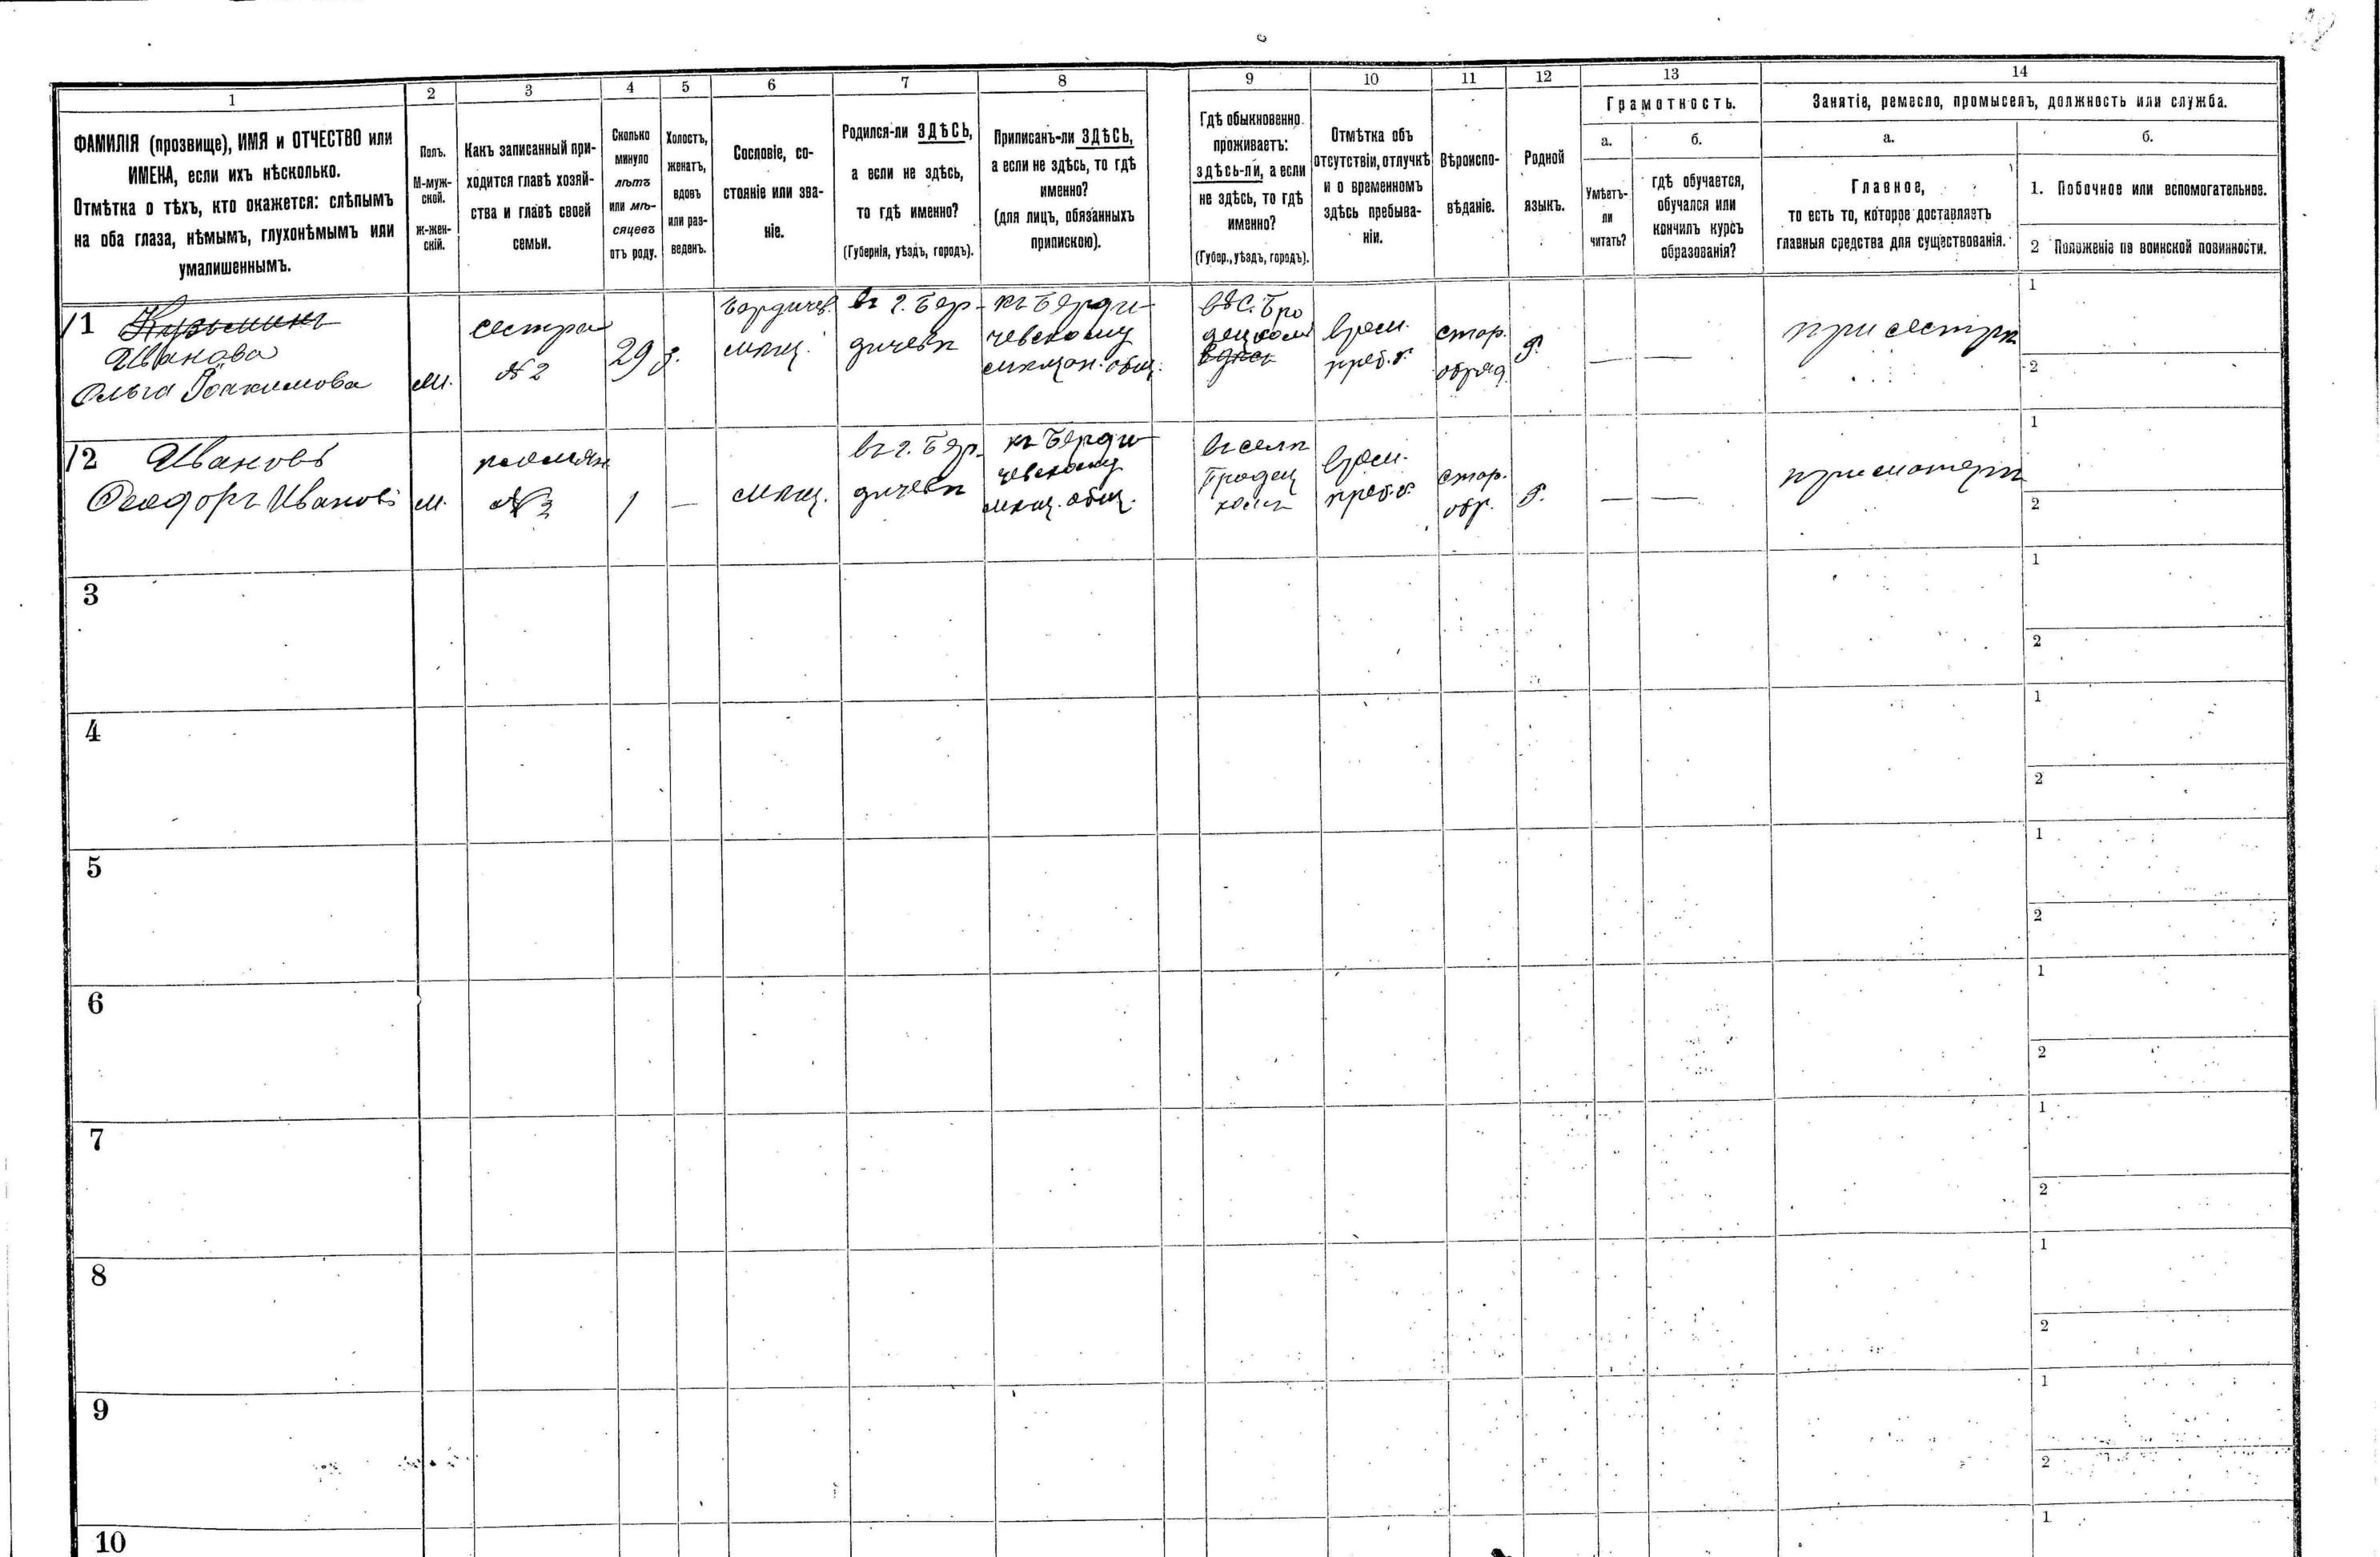 1 2 3 4 5 6 7 8 9 10 11 12 13 14
ФАМИЛІЯ (прозвище), ИМЯ и ОТЧЕСТВО или
ИМЕНА, если ихъ нѣсколько.
Отмѣтка о тѣхъ, кто окажется: слѣпымъ
на оба глаза, нѣмымъ, глухонѣмымъ или
умалишеннымъ.
Полъ.
М-муж-
ской.
Ж-жен-
скій.
Какъ записанный при-
ходится главѣ хозяй-
ства и главѣ своей
семьи.
Сколько
минуло
лѣтъ
или мѣ-
сяцевъ
отъ роду.
Холостъ,
женатъ,
вдовъ
или раз-
веденъ.
Сословіе, со-
стояніе или зва-
ніе.
Родился-ли ЗДѢСЬ,
а если не здѣсь,
то гдѣ именно?
(Губернія, уѣздъ, городъ).
Приписанъ-ли ЗДѢСЬ,
а если не здѣсь, то гдѣ
именно?
(для лицъ, обязанныхъ
припискою).
Гдѣ обыкновенно
проживаетъ:
здѣсь-ли, а если
не здѣсь, то гдѣ
именно?
(Губер., уѣздъ, городъ).
Отмѣтка объ
отсутствіи, отлучкѣ
и о временномъ
здѣсь пребыва-
ніи.
Вѣроиспо-
вѣданіе.
Родной
языкъ.
Грамотность.
а.
Умѣетъ-
ли
читать?
б.
гдѣ обучается,
обучался или
кончилъ курсъ
образованія?
Занятіе, ремесло, промыселъ, должность или служба.
а.
Главное,
то есть то, которое доставляетъ
главныя средства для существованія.
б.
1. Побочное или вспомогательное.
2 Положеніе по воинской повинности.
1
Иванова
Ольга Іоакимова
м.
сестра
№ 2
29
з.
Бердичев.
мѣщ.
въ г. Бер-
дичевѣ
къ Берди-
чевскому
мѣщан. общ.
въ с. Бро
децком
здѣсь
врем.
преб.
стар.
обряд.
р.
— —
при сестрѣ
1
2
2
Ивановъ
Феодоръ Ивановъ
м.
№ 3
1
—
мѣщ.
въ г. Бер-
дичевѣ
къ Берди-
чевскому
мѣщ. общ.
въ селѣ
Бродец
комъ
врем.
преб.
стар.
обр.
р.
— —
при матери
1
2
3
1
2
4
1
2
5
1
2
6
1
2
7
1
2
8
1
2
9
1
2
10
1